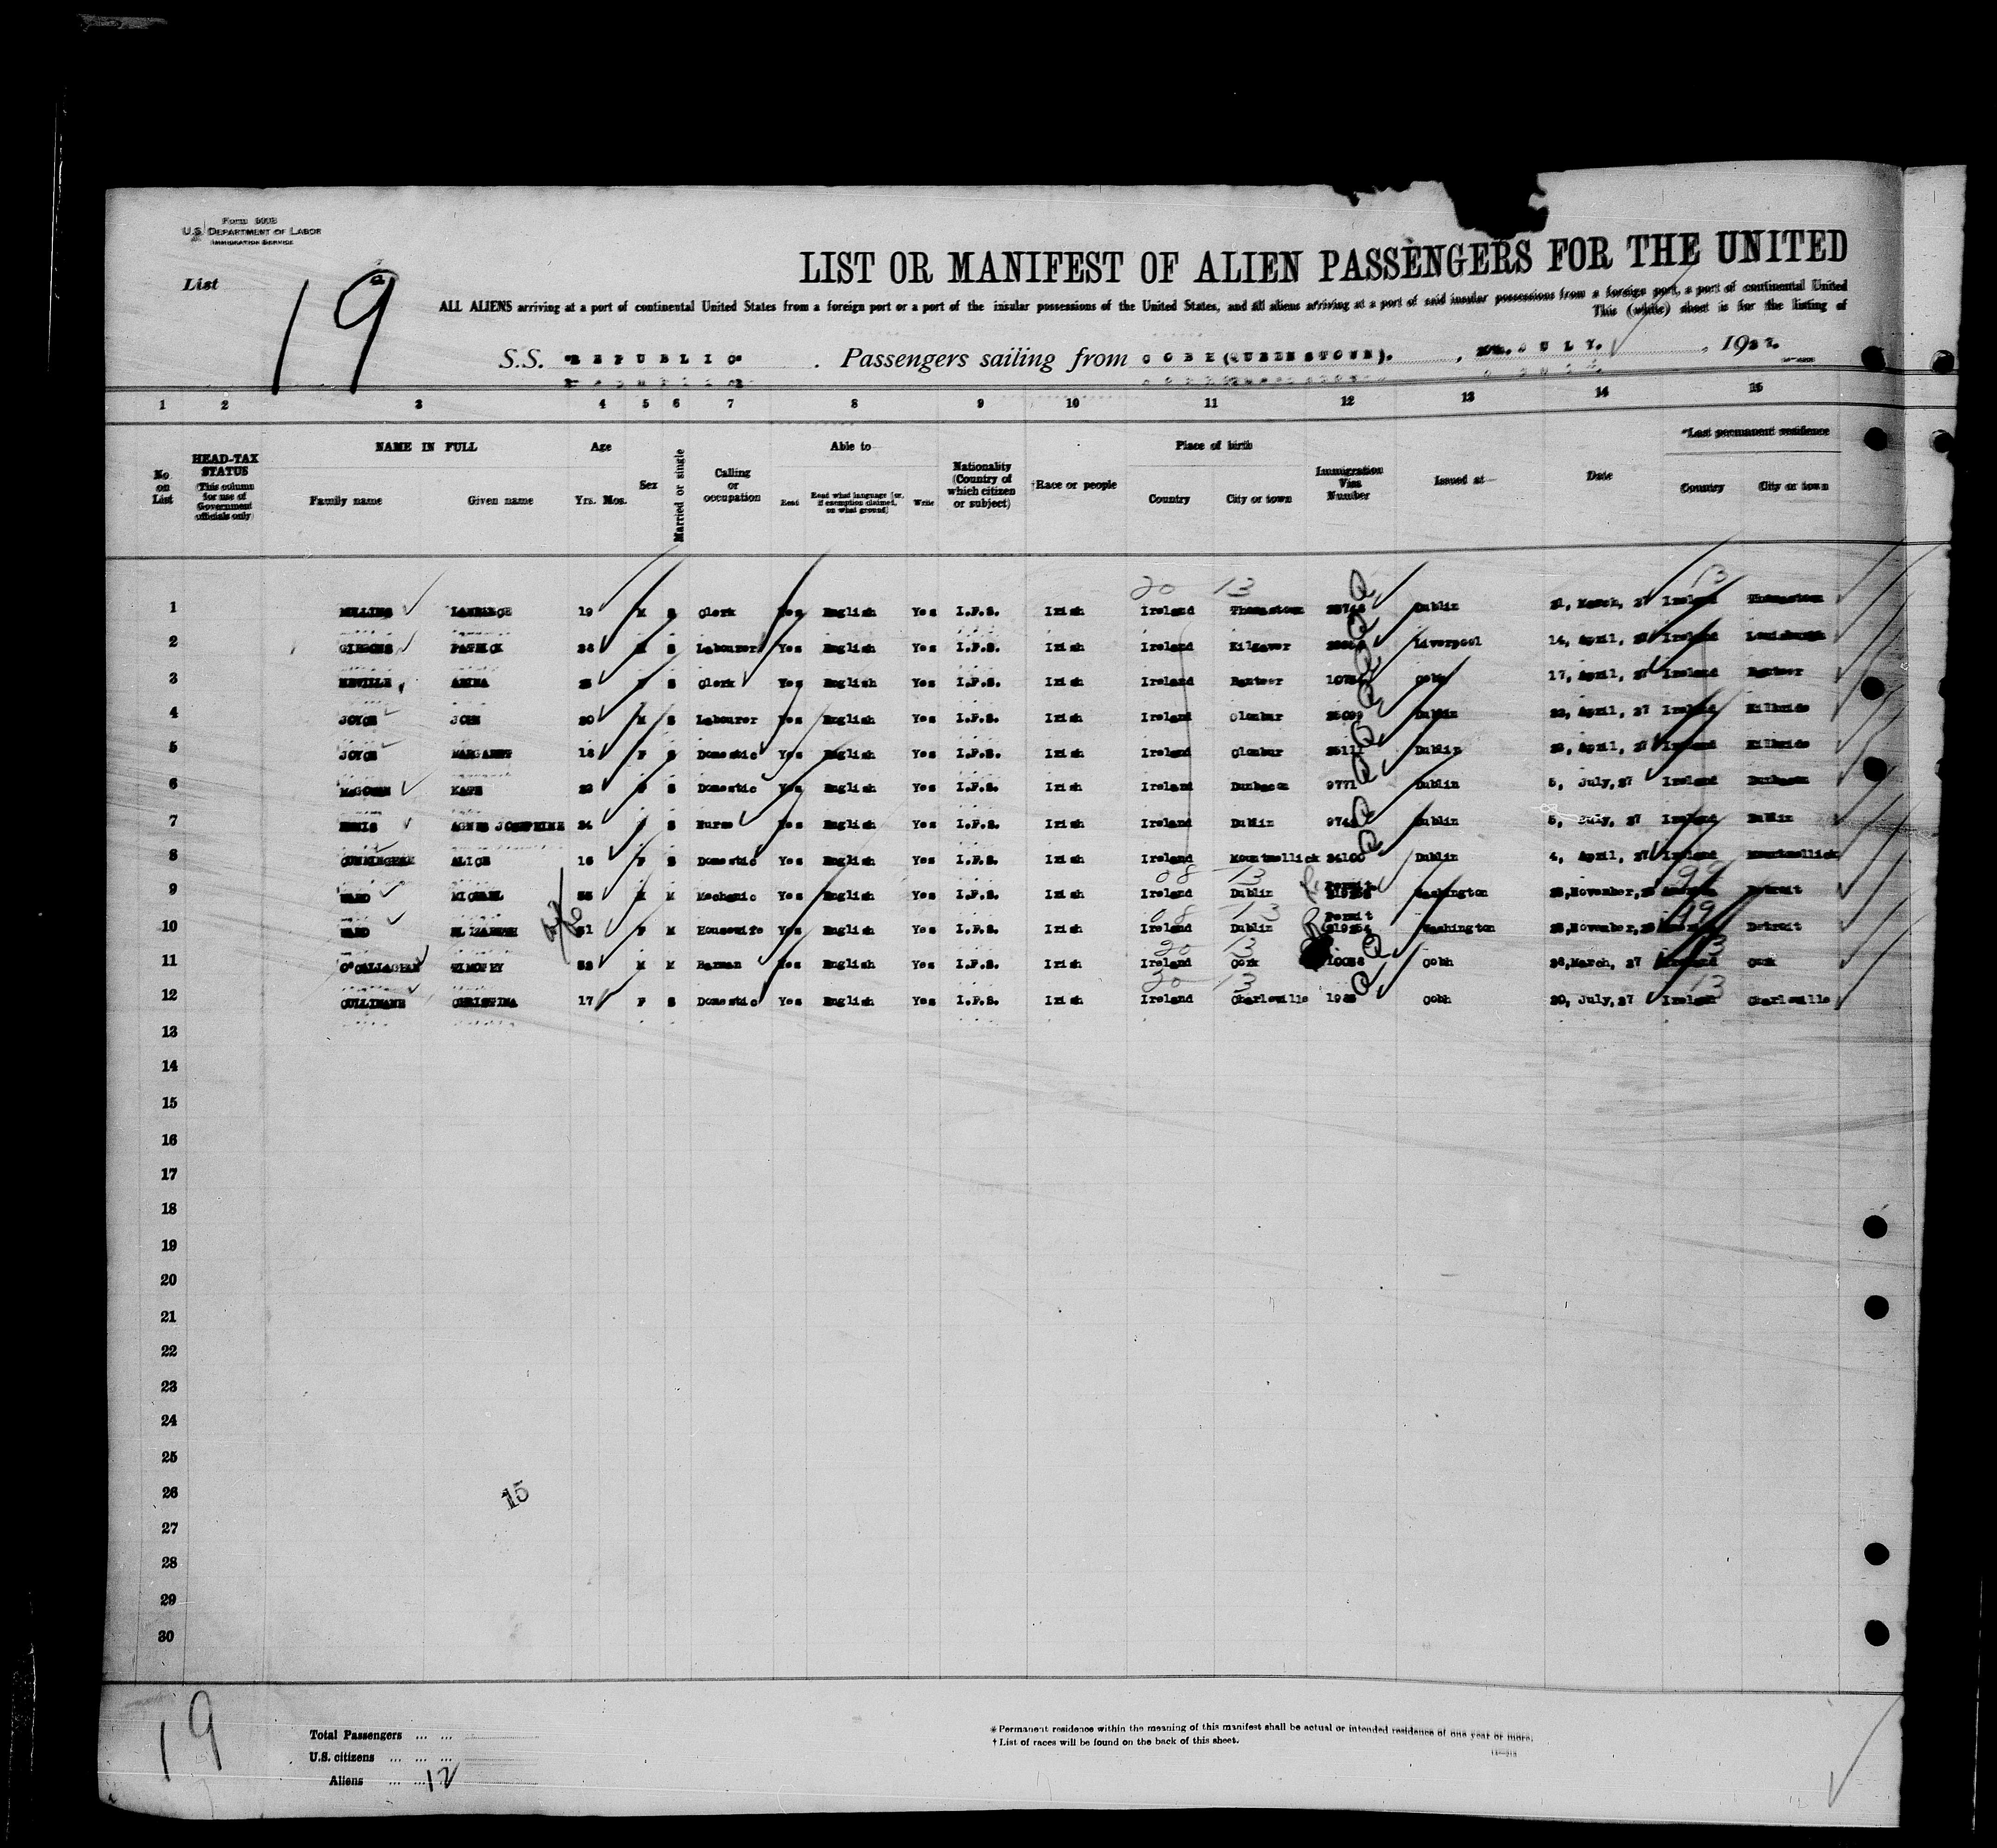 Form 500B
U.S. DEPARTMENT OF LABOR
IMMIGRATION SERVICE
List 19
LIST OR MANIFEST OF ALIEN PASSENGERS FOR THE UNITED
ALL ALIENS arriving at a port of continental United States from a foreign port or a port of the insular possessions of the United States, and all aliens arriving at a port of said insular possessions from a foreign port, a port of continental United
This (white) sheet is for the listing of
S.S. "REPUBLIC" . Passengers sailing from COBH (QUEENSTOWN). , JULY. , 1927.
1 2 3 4 5 6 7 8 9 10 11 12 13 14 15
No. on List
HEAD-TAX STATUS (This column for use of Government officials only)
NAME IN FULL Family name Given name
Age Yrs. Mos.
Sex
Married or single
Calling or occupation
Able to Read Read what language [or, if exemption claimed, on what ground] Write
Nationality (Country of which citizen or subject)
†Race or people
Place of birth Country City or town
Immigration Visa Number
Issued at—
Date
*Last permanent residence Country City or town
20 13 13
1 19 M S Clerk Yes English Yes I.F.S. Irish Ireland Thomastown Dublin 21, March, 27 Ireland Thomastown
2 GIBBONS PATRICK S Labourer Yes English Yes I.F.S. Irish Ireland Kilgaver Liverpool 14, April, 27 Ireland Louisburgh
3 NEVILLE S Clerk Yes English Yes I.F.S. Irish Ireland Banteer Cobh 17, April, 27 Ireland Banteer
4 JOYCE JOHN 20 M S Labourer Yes English Yes I.F.S. Irish Ireland Clonbur Dublin 22, April, 27 Ireland Kilbride
5 JOYCE MARGARET 18 F S Domestic Yes English Yes I.F.S. Irish Ireland Clonbur Dublin 22, April, 27 Ireland Kilbride
6 McGOWAN KATE S Domestic Yes English Yes I.F.S. Irish Ireland 9771 Dublin 5, July, 27 Ireland
7 ENNIS AGNES JOSEPHINE 24 S Nurse Yes English Yes I.F.S. Irish Ireland Dublin Dublin 5, July, 27 Ireland Dublin
8 CUNNINGHAM ALICE F S Domestic Yes English Yes I.F.S. Irish Ireland Mountmellick 24100 Dublin 4, April, 27 Ireland Mountmellick
08 13 99
9 WARD MICHAEL M M Mechanic Yes English Yes I.F.S. Irish Ireland Dublin Permit Washington November, Detroit
08 13 99
10 WARD ELIZABETH F M Housewife Yes English Yes I.F.S. Irish Ireland Dublin Permit Washington November, Detroit
20 13 13
11 O'CALLAGHAN TIMOTHY M M Barman Yes English Yes I.F.S. Irish Ireland Cork Cobh 26, March, 27 Ireland Cork
20 13 13
12 CULLINANE CHRISTINA 17 F S Domestic Yes English Yes I.F.S. Irish Ireland Charleville Cobh 20, July, 27 Ireland Charleville
13
14
15
16
17
18
19
20
21
22
23
24
25
26
15
27
28
29
30
19
Total Passengers ... ...
U.S. citizens ... ... ...
Aliens ... ... 12
* Permanent residence within the meaning of this manifest shall be actual or intended residence of one year or more.
† List of races will be found on the back of this sheet.